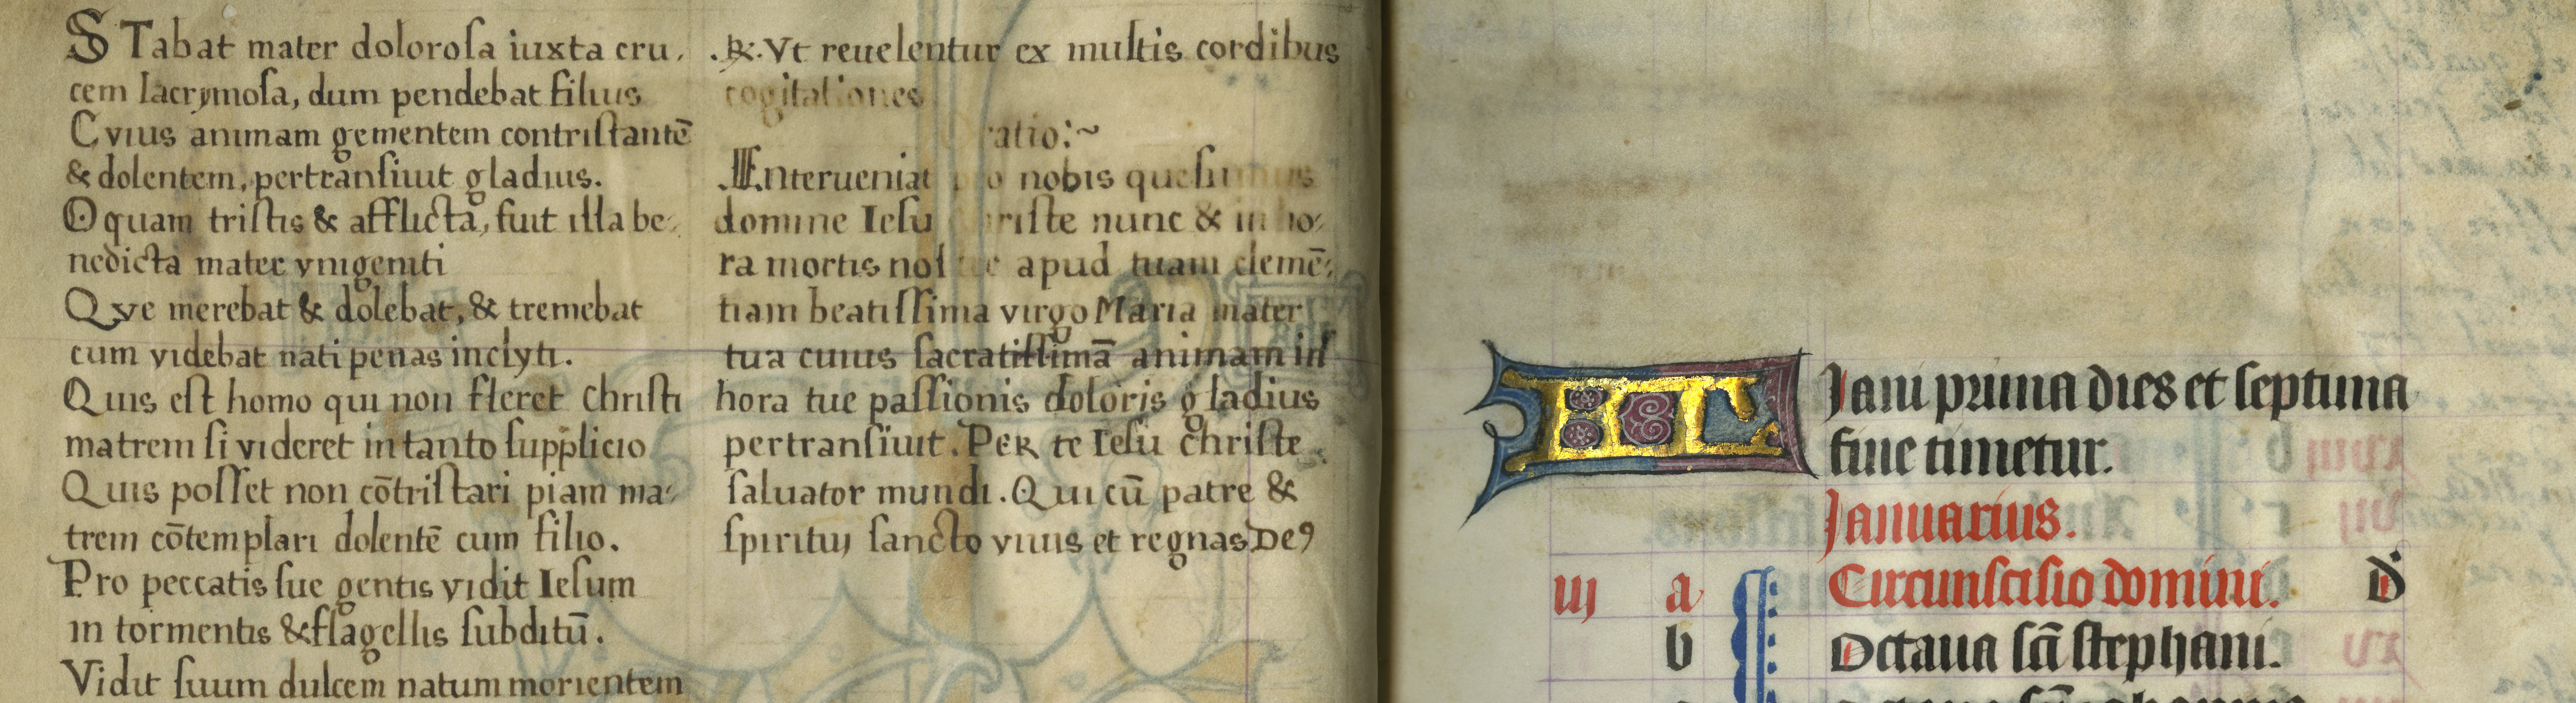 STabat mater doloroſa iuxta cru,
cem lacrymoſa, dum pendebat filius
Cvius animam gementem contriſtantē
& dolentem, pertranſiuit gladius.
O quam triſtis & afflicta, fuit illa be-
nedicta mater vnigeniti
Qve merebat & dolebat, & tremebat
cum videbat nati penas inclyti.
Quis eſt homo qui non fleret Chriſti
matrem ſi videret in tanto ſupplicio
Quis poſſet non cōtriſtari piam ma-
trem cōtemplari dolentē cum filio.
Pro peccatis ſue gentis vidit Ieſum
in tormentis & flagellis ſubditū.
Vidit ſuum dulcem natum morientem
.℟. Vt reuelentur ex multis cordibus
cogitationes
ratio:~
.Interueniat pro nobis queſumus
domine Ieſu Chriſte nunc & in ho-
ra mortis noſtre apud tuam clemē-
tiam beatiſſima virgo Maria mater
tua cuius ſacratiſſimā animam in
hora tue paſſionis doloris gladius
pertranſiuit. PER te Ieſu chriſte
ſaluator mundi. Qui cū patre &
ſpiritu ſancto viuis et regnas De9
KL Jani prima dies et ſeptima
fine timetur.
Januarius.
iij a Circunſciſio domini. D
b Octaua ſcī ſtephani.